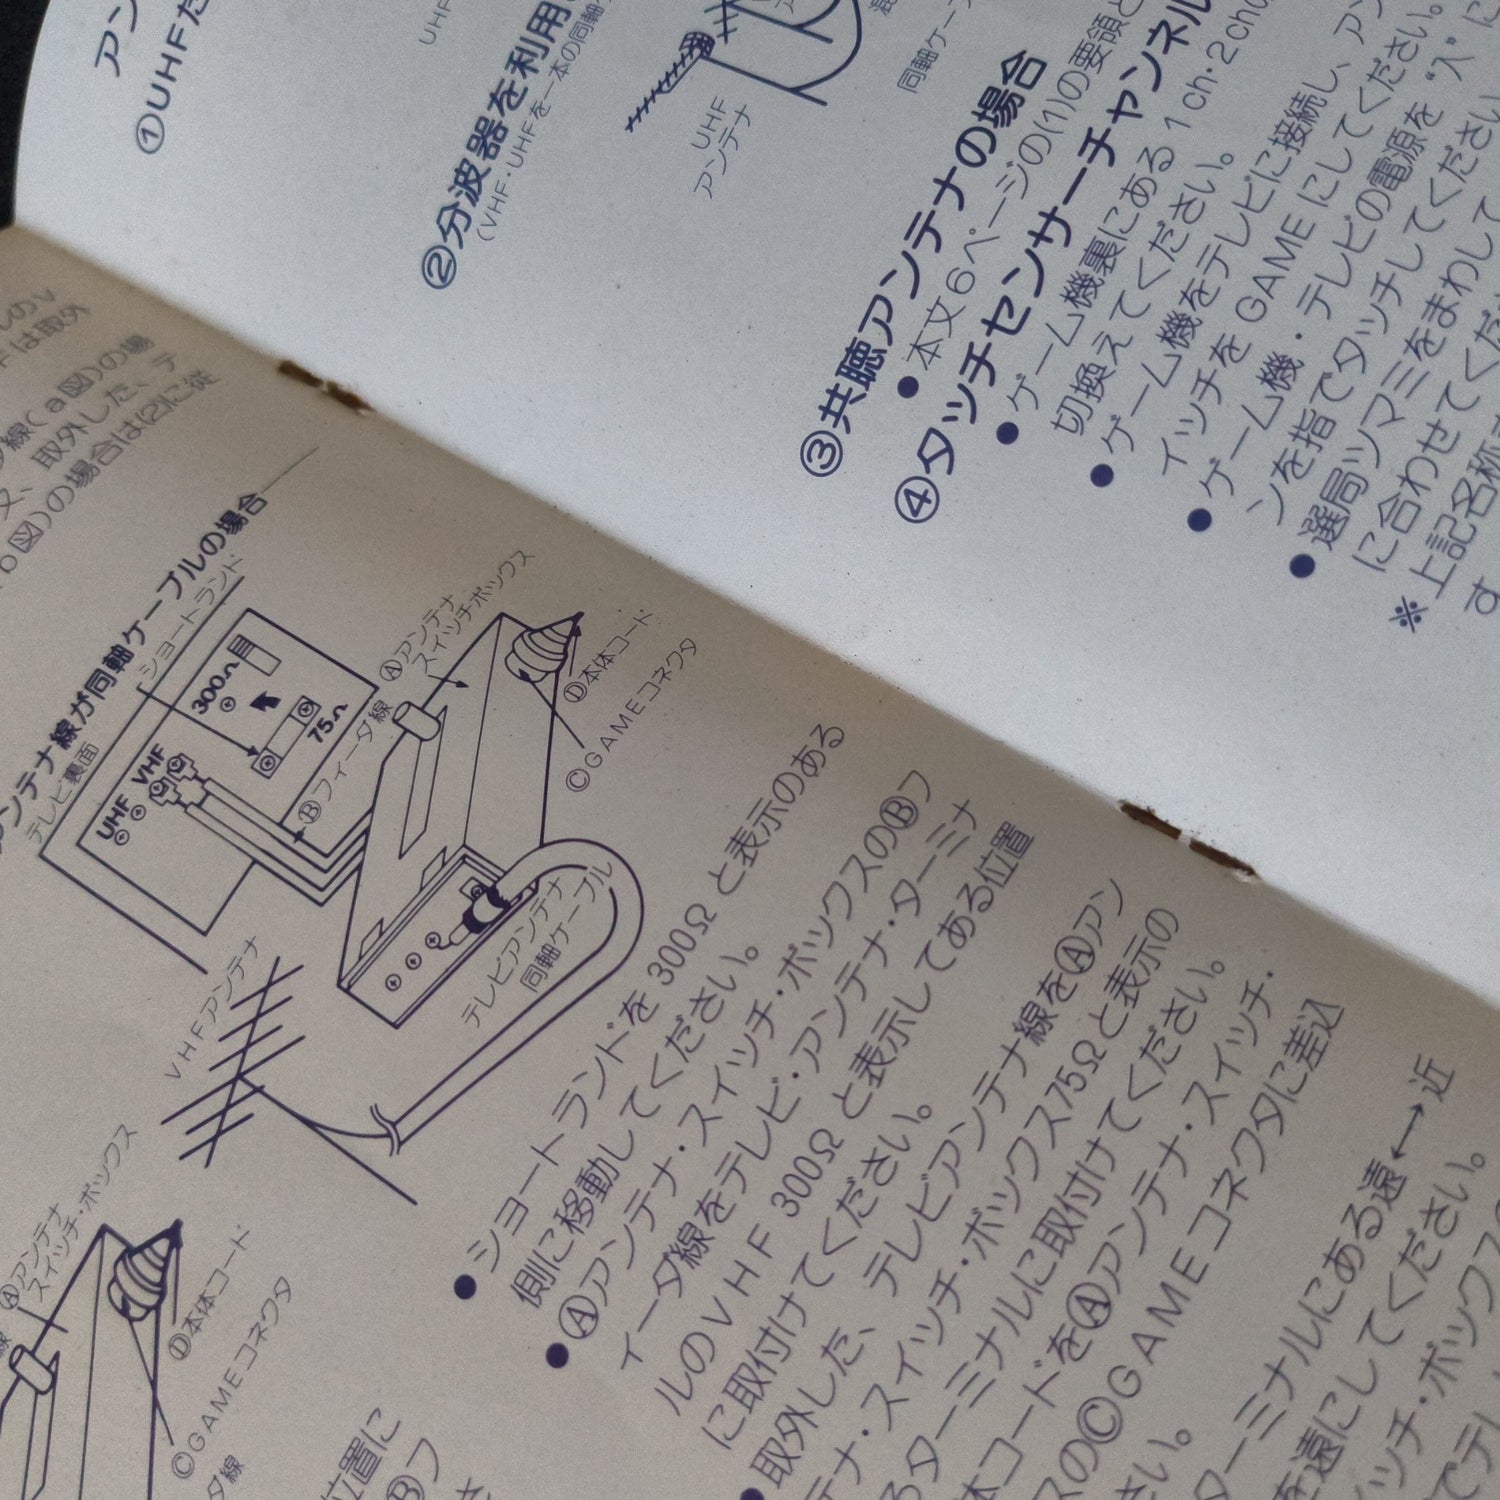 ①UHFだ
②分波器を利用
(VHF・UHFを一本の同軸
UHF
アンテナ
同軸ケー
③共聴アンテナの場合
●本文6ページの(1)の要領と
④タッチセンサーチャンネル
●ゲーム機裏にある1ch・2ch
切換えてください。
●ゲーム機をテレビに接続し、アン
イッチを GAME にしてください。
●ゲーム機・テレビの電源を“入”に
ンを指でタッチしてください
●選局ツマミをまわして
に合わせてくだ
※上記名称
す
のV
Fは取外
線(a図)の場
又、取外した、テ
b図)の場合は(2)に従
ンテナ線が同軸ケーブルの場合
テレビ裏面
ショートランド
UHF
VHF
300Ω
75Ω
Ⓑフィーダ線
Ⓐアンテナ
スイッチボックス
Ⓓ本体コード
ⒸGAMEコネクタ
テレビアンテナ
同軸ケーブル
VHFアンテナ
Ⓐアンテナ
スイッチ・ボックス
Ⓓ本体コード
ⒸGAMEコネクタ
ダ線
●ショートランドを 300Ω と表示のある
側に移動してください。
●Ⓐアンテナ・スイッチ・ボックスのⒷフ
ィーダ線をテレビ・アンテナ・ターミナ
ルのVHF 300Ω と表示してある位置
に取付けてください。
●取外した、テレビアンテナ線をⒶアン
テナ・スイッチ・ボックス75Ωと表示の
るターミナルに取付けてください。
体コードをⒶアンテナ・スイッチ・
スのⒸGAMEコネクタに差込
さい。
ターミナルにある遠←→近
を遠にしてください。
ッチ・ボックス
位置に
Ⓑフ